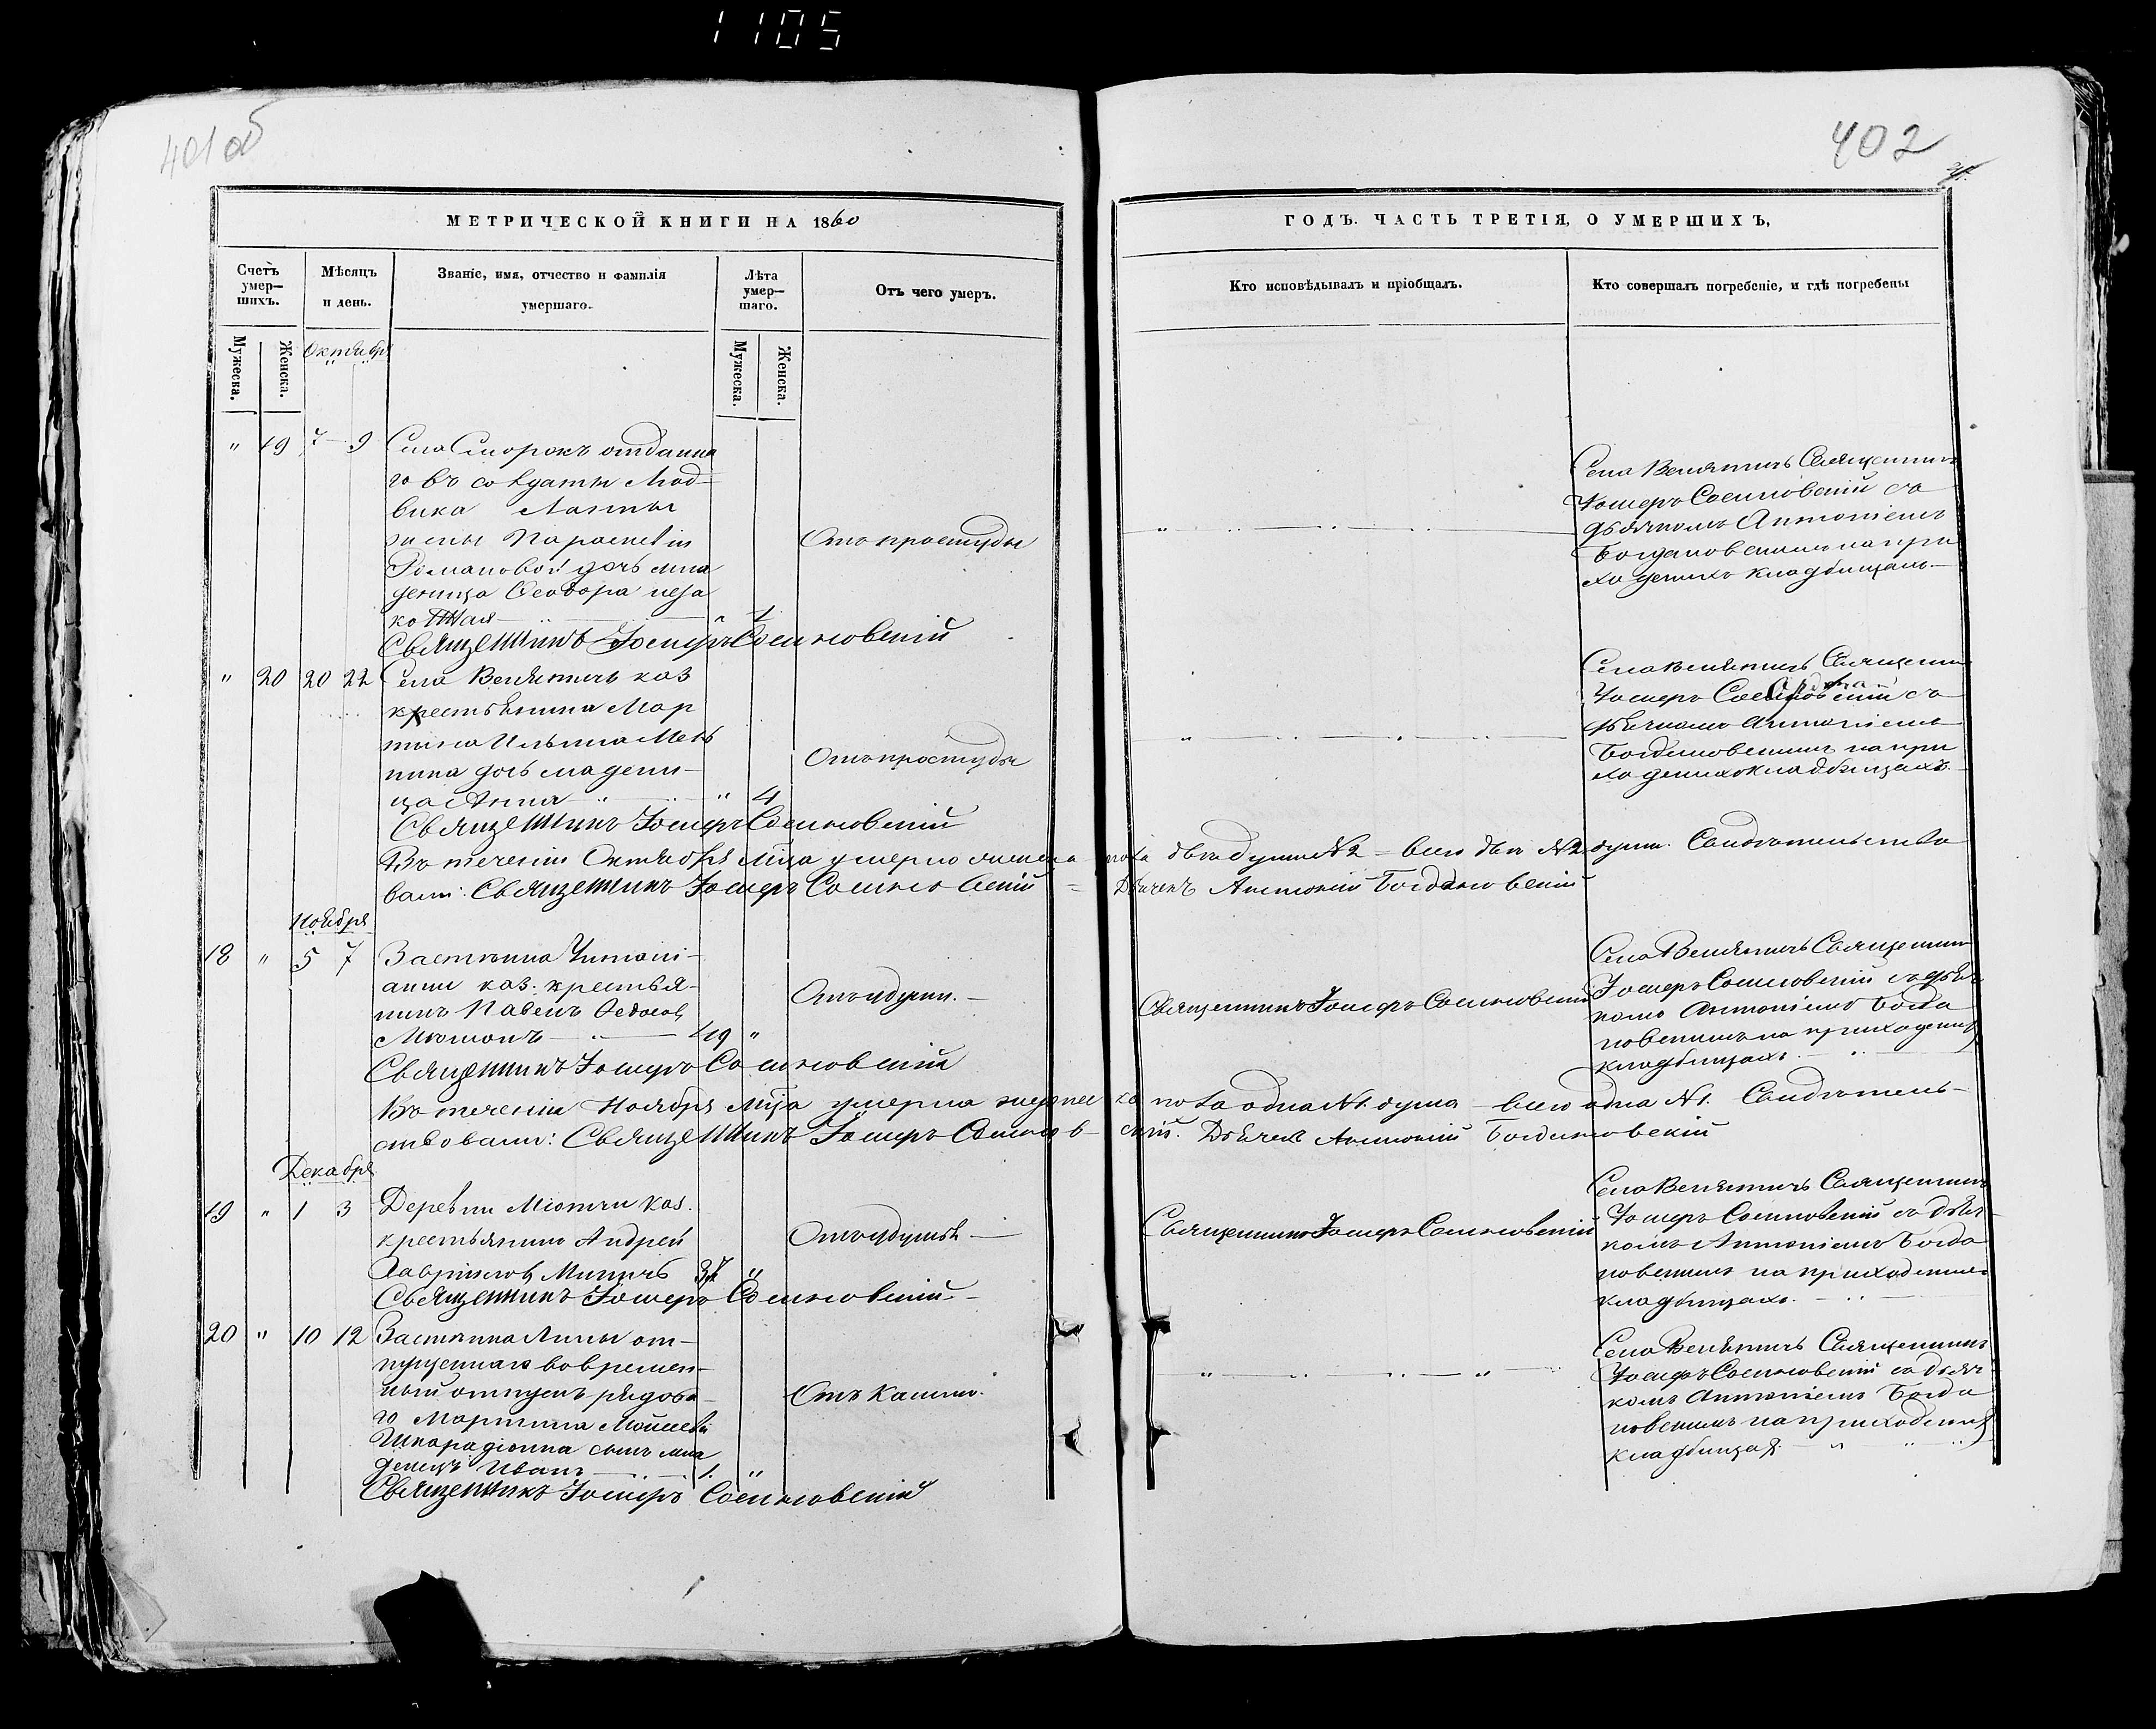 1105
401 об
402
МЕТРИЧЕСКОЙ КНИГИ НА 1860
ГОДЪ. ЧАСТЬ ТРЕТІЯ, О УМЕРШИХЪ,
Счетъ умер—шихъ.
Мѣсяцъ и день.
Званіе, имя, отчество и фамилія умершаго.
Лѣта умер—шаго.
Отъ чего умеръ.
Кто исповѣдывалъ и пріобщалъ.
Кто совершалъ погребеніе, и гдѣ погребены
Мужеска.
Женска.
Октябрь
Мужеска.
Женска.
" 19 7 9
Села Сморокъ отданна
го въ солдаты Люд
вика
жены Параскевіи
Романовой дочь мла
деница Ѳеодора неза
конная " 1
Отъ простуды
Села Велятичъ Священникъ
Іосифъ Сосиновскій съ
дьячкомъ Антоніемъ
Богдановскимъ на при
ходскихъ кладбищахъ
Священникъ Іосифъ Сосиновскій
" 20 20 22
Села Велятичъ каз
крестьянина Мар
тина Ильина
дочь младени
ца Анна " 4
Отъ простуды
Села Велятичъ Священни
Іосифъ Сосиновскій съ
дьячкомъ Антоніемъ
Богдановскимъ на при
ходскихъ кладбищахъ
Священникъ Іосифъ Сосиновскій
Въ теченіи Октября мца умерло женска пола двѣ души №2 — всего двѣ №2 души. Свидѣтельство
вали: Священникъ Іосифъ Сосиновскій = Дьячекъ Антоній Богдановскій
Ноября
18 " 5 7
Застѣнка
каз. крестья
нинъ Павелъ Ѳедосов
49 "
Отъ удуш.
Священникъ Іосифъ Сосиновскій
Села Велятичъ Священник
Іосифъ Сосиновскій съ дьяч
комъ Антоніемъ Богда
новскимъ на приходскихъ
кладбищахъ
Священникъ Іосифъ Сосиновскій
Въ теченіи Ноября мца умерла мужес ка пола одна №1. душа — всего одна №1. Свидѣтель—
ствовали: Священникъ Іосифъ Сосинов— скій. Дьячекъ Антоній Богдановскій
Декабря
19 " 1 3
Деревни каз.
крестьянинъ Андрей
Гавріиловъ "
Отъ удушья
Священникъ Іосифъ Сосиновскій
Села Велятичъ Священникъ
Іосифъ Сосиновскій съ дьяч
комъ Антоніемъ Богда
новскимъ на приходскихъ
кладбищахъ.
Священникъ Іосифъ Сосиновскій
20 " 10 12
Застѣнка Липы от—
пущеннаго во времен—
ный отпускъ рядова
го Мартина Мойсеева
сынъ мла
денецъ Иванъ 1. "
Отъ кашлю.
Села Велятичъ Священникъ
Іосифъ Сосиновскій съ дьяч
комъ Антоніемъ Богда
новскимъ на приходскихъ
кладбищахъ
Священникъ Іосифъ Сосиновскій